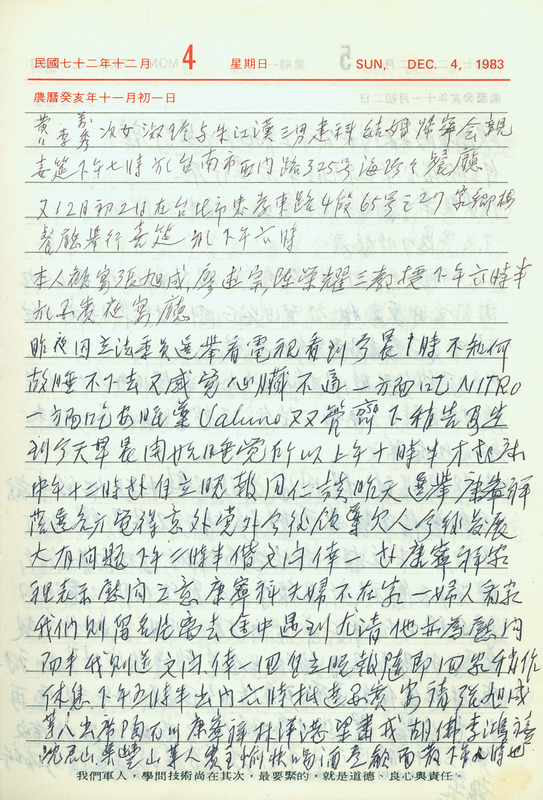 民國七十二年十二月 4 星期日 SUN, DEC. 4, 1983
農曆癸亥年十一月初一日
黃李秀 次女淑 與朱江漢三男建科結婚歸寧會親
喜筵下午七時於台南市西門路325号海 餐廳
又12月初2日在台北市忠孝東路4段65号之27 鄉梅
餐廳舉行喜筵於下午六時
本人 張旭成,廖 宗,陈荣耀三教授下午六時半
於 貴 廳
昨夜因立法委員選舉看電視看到今晨1時不知何
故睡不下去又感覺心臟不適一方面吃NITRO
一方面吃安眠藥Valume又 齊下
到今天早晨 開始睡覺所以上午十時半才起床
中午十二時赴自立晚報同仁談昨天選舉康寧祥
落選各方覺得意外党外今後 人今後發展
大有問題下午二時半偕文 一赴康寧祥家
裡表示慰问之意康寧祥夫婦不在家一婦人看家
我們則留名 離去途中遇到尤清他亦為慰问
而 我則送文 回自立晚報隨即回家稍作
休息下午五時半出门六時抵 貴 請張旭成
等人出席陶百川康寧祥林洋港 胡佛李鴻禧
沈君山 山等人賓主愉快喝酒 而散下午九時
我們軍人,學問技術尚在其次,最要緊的,就是道德、良心與責任。